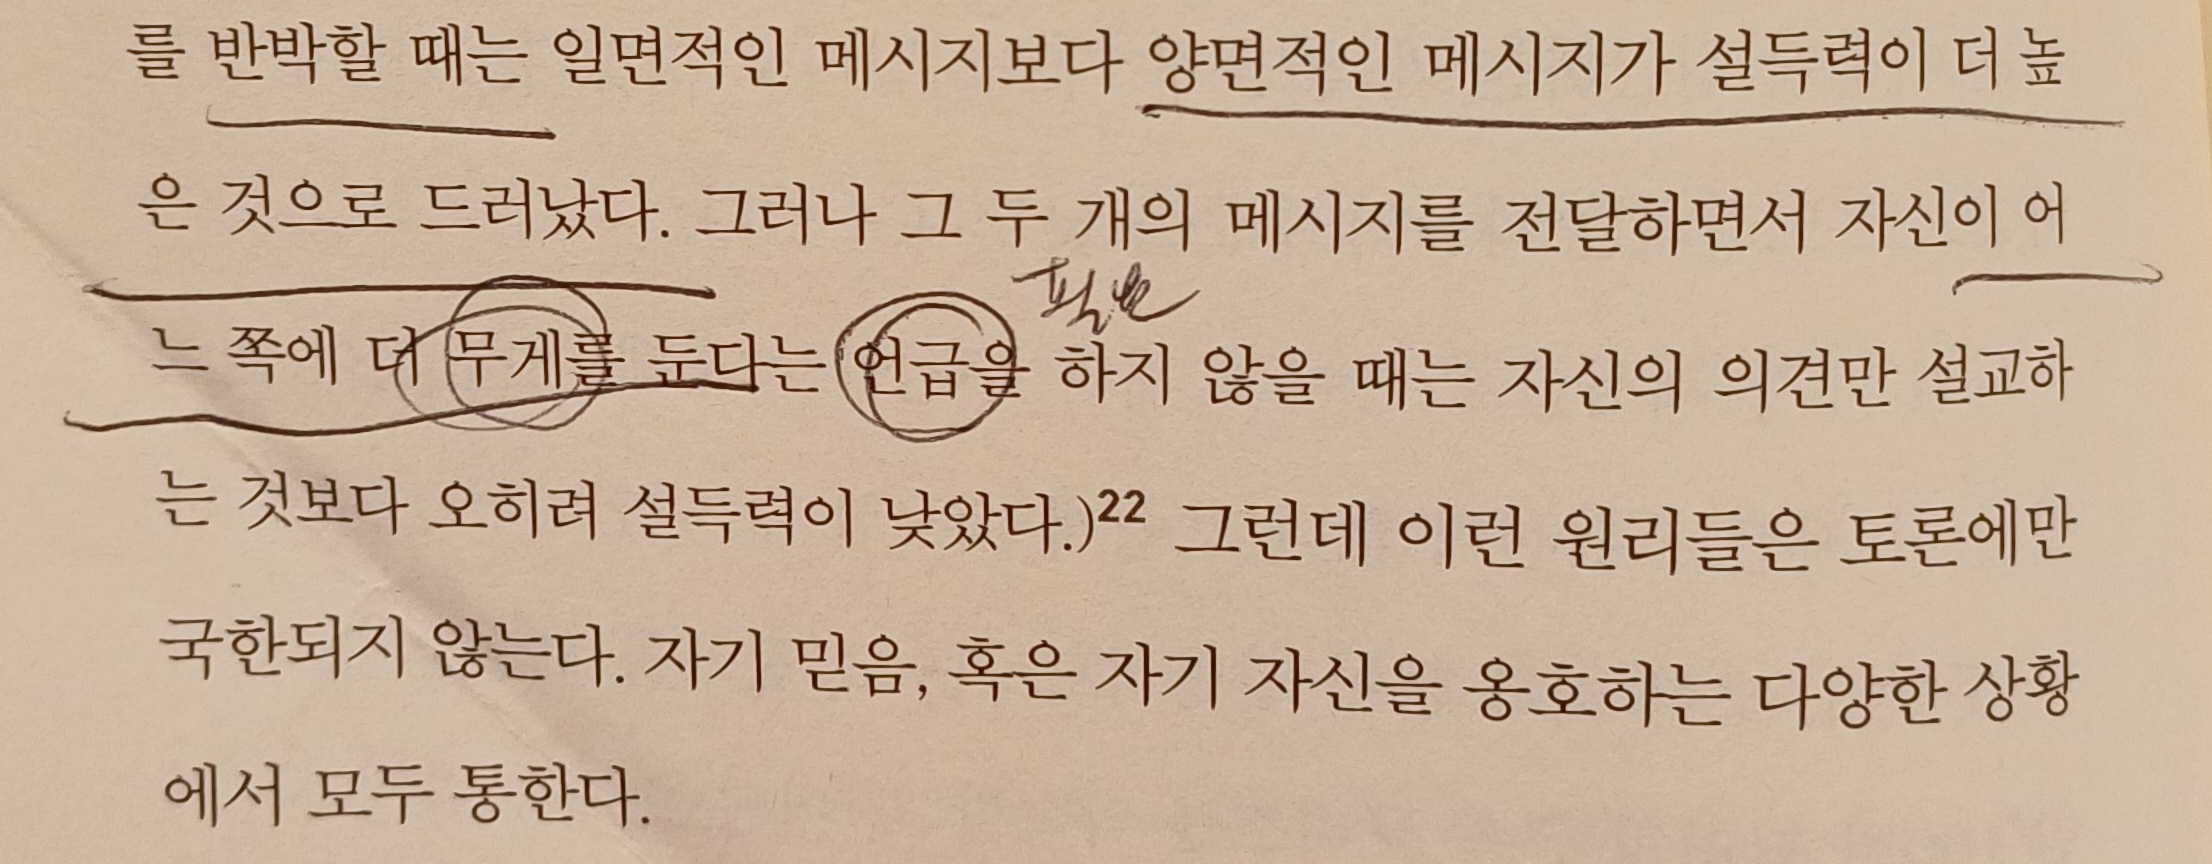 를 반박할 때는 일면적인 메시지보다 양면적인 메시지가 설득력이 더 높
은 것으로 드러났다. 그러나 그 두 개의 메시지를 전달하면서 자신이 어
필요
느 쪽에 더 무게를 둔다는 언급을 하지 않을 때는 자신의 의견만 설교하
는 것보다 오히려 설득력이 낮았다.)22 그런데 이런 원리들은 토론에만
국한되지 않는다. 자기 믿음, 혹은 자기 자신을 옹호하는 다양한 상황
에서 모두 통한다.